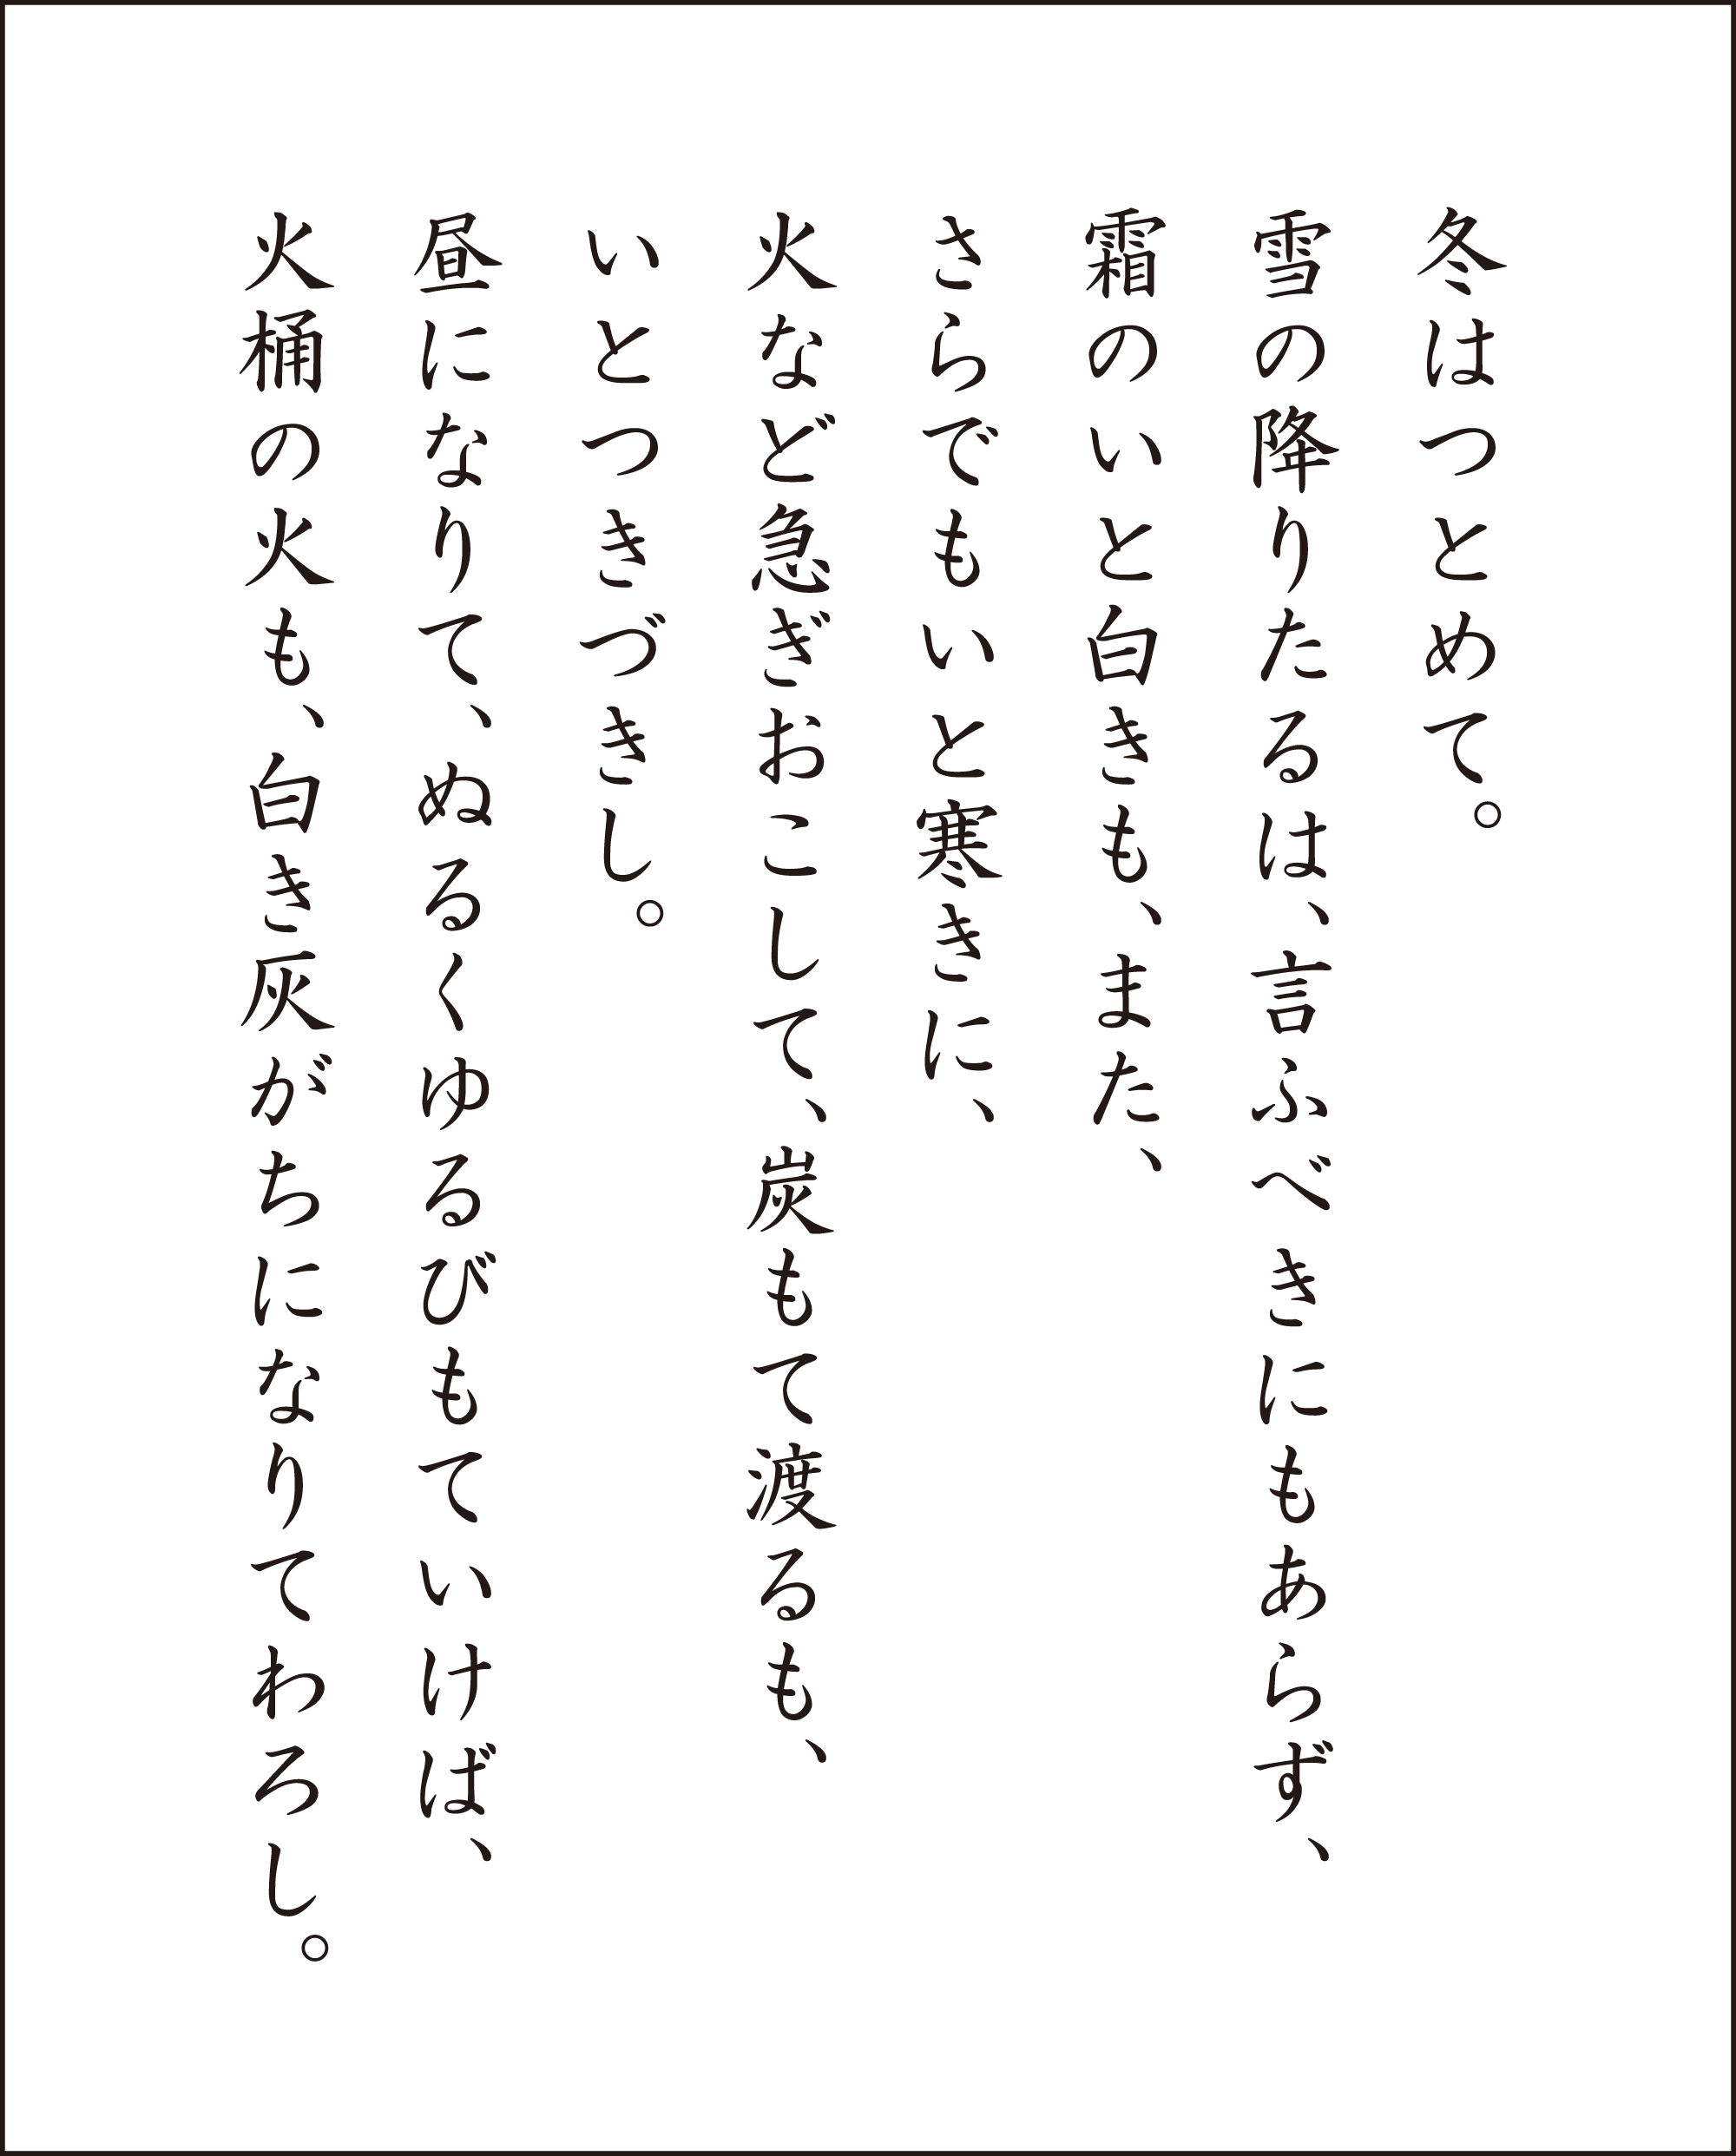 冬はつとめて。
雪の降りたるは、言ふべきにもあらず、
霜のいと白きも、また、
さらでもいと寒きに、
火など急ぎおこして、炭もて渡るも、
いとつきづきし。
昼になりて、ぬるくゆるびもていけば、
火桶の火も、白き灰がちになりてわろし。